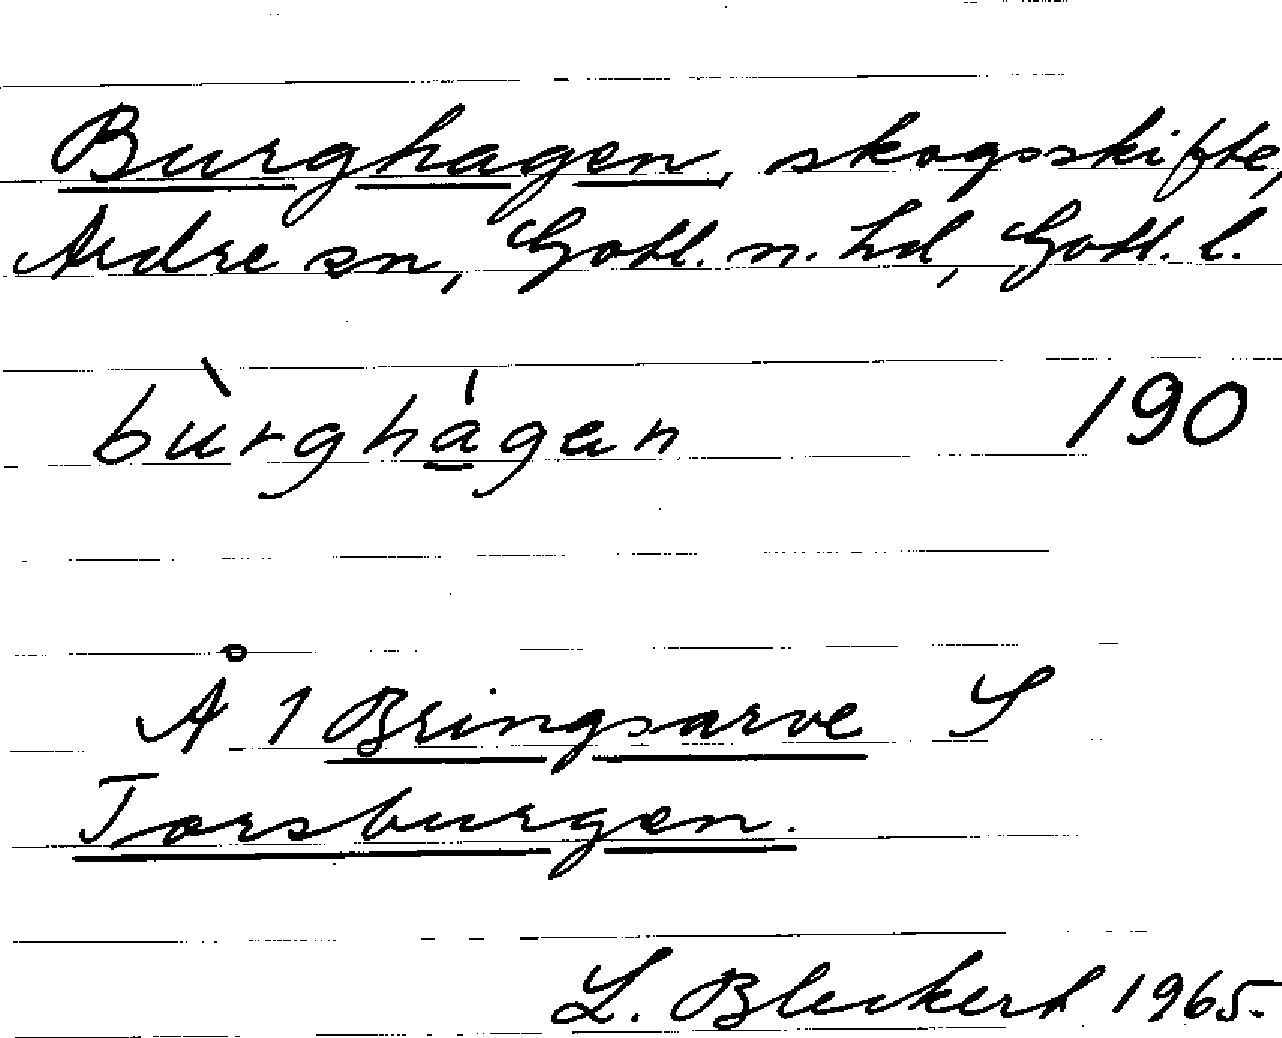 Burghagen, skogsskifte,
Ardre sn, Gotl. n. hd, Gotl. l.
bùrghá̱gan 190
Å 1 Bringsarve S
Torsburgen.
L. Bleckert 1965.